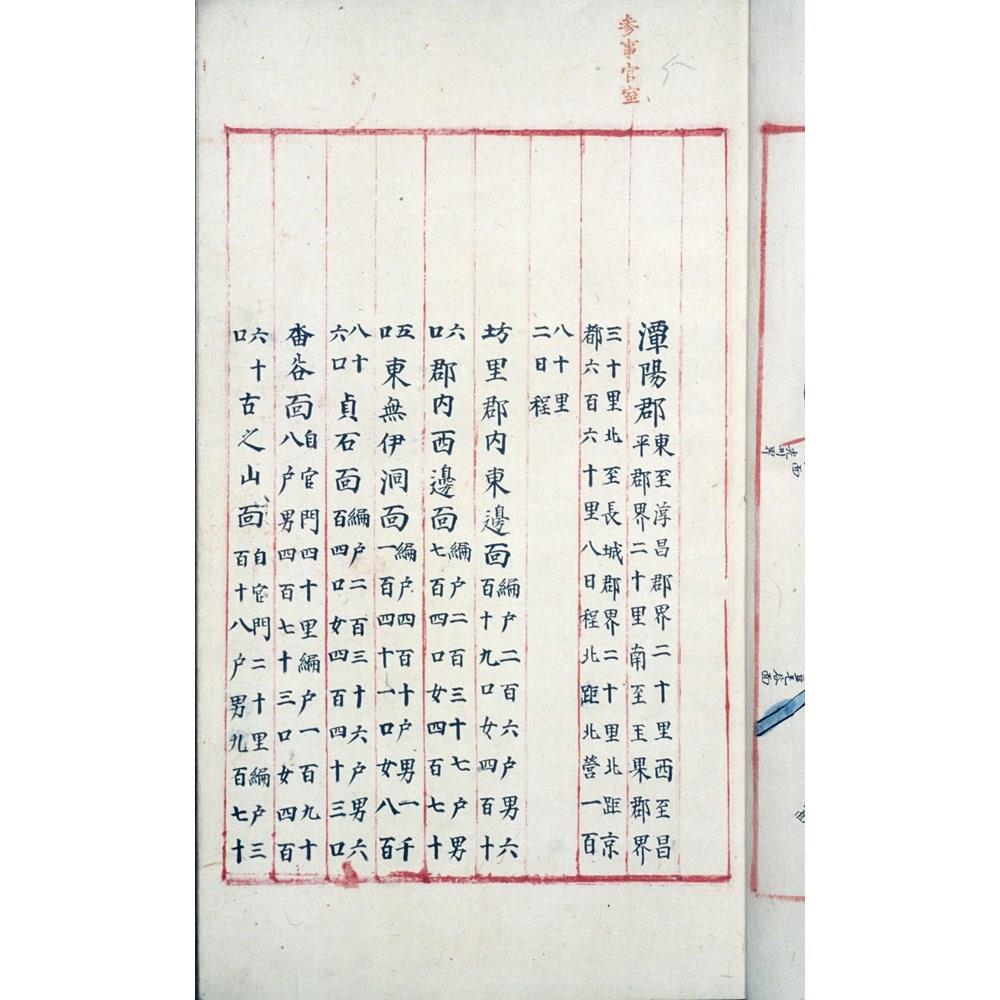 參事官室
潭陽郡東至淳昌郡界二十里西至昌平郡界二十里南至玉果郡界
三十里北至長城郡界二十里北距京都六百六十里八日程北距北營一百
八十里二日程
坊里郡内東邊面編户二百六户男六百十九口女四百十
六口郡内西邊面編户二百三十七户男七百四口女四百七十
五口東無伊洞面編户四百十户男一千一百四十一口女八百
八十六口貞石面編户二百三十六户男六百四口女四百四十三口
畨谷面自官門四十里編户一百九十八户男四百七十三口女四百
六十口古之山面自官門二十里編户三百十八户男九百七十